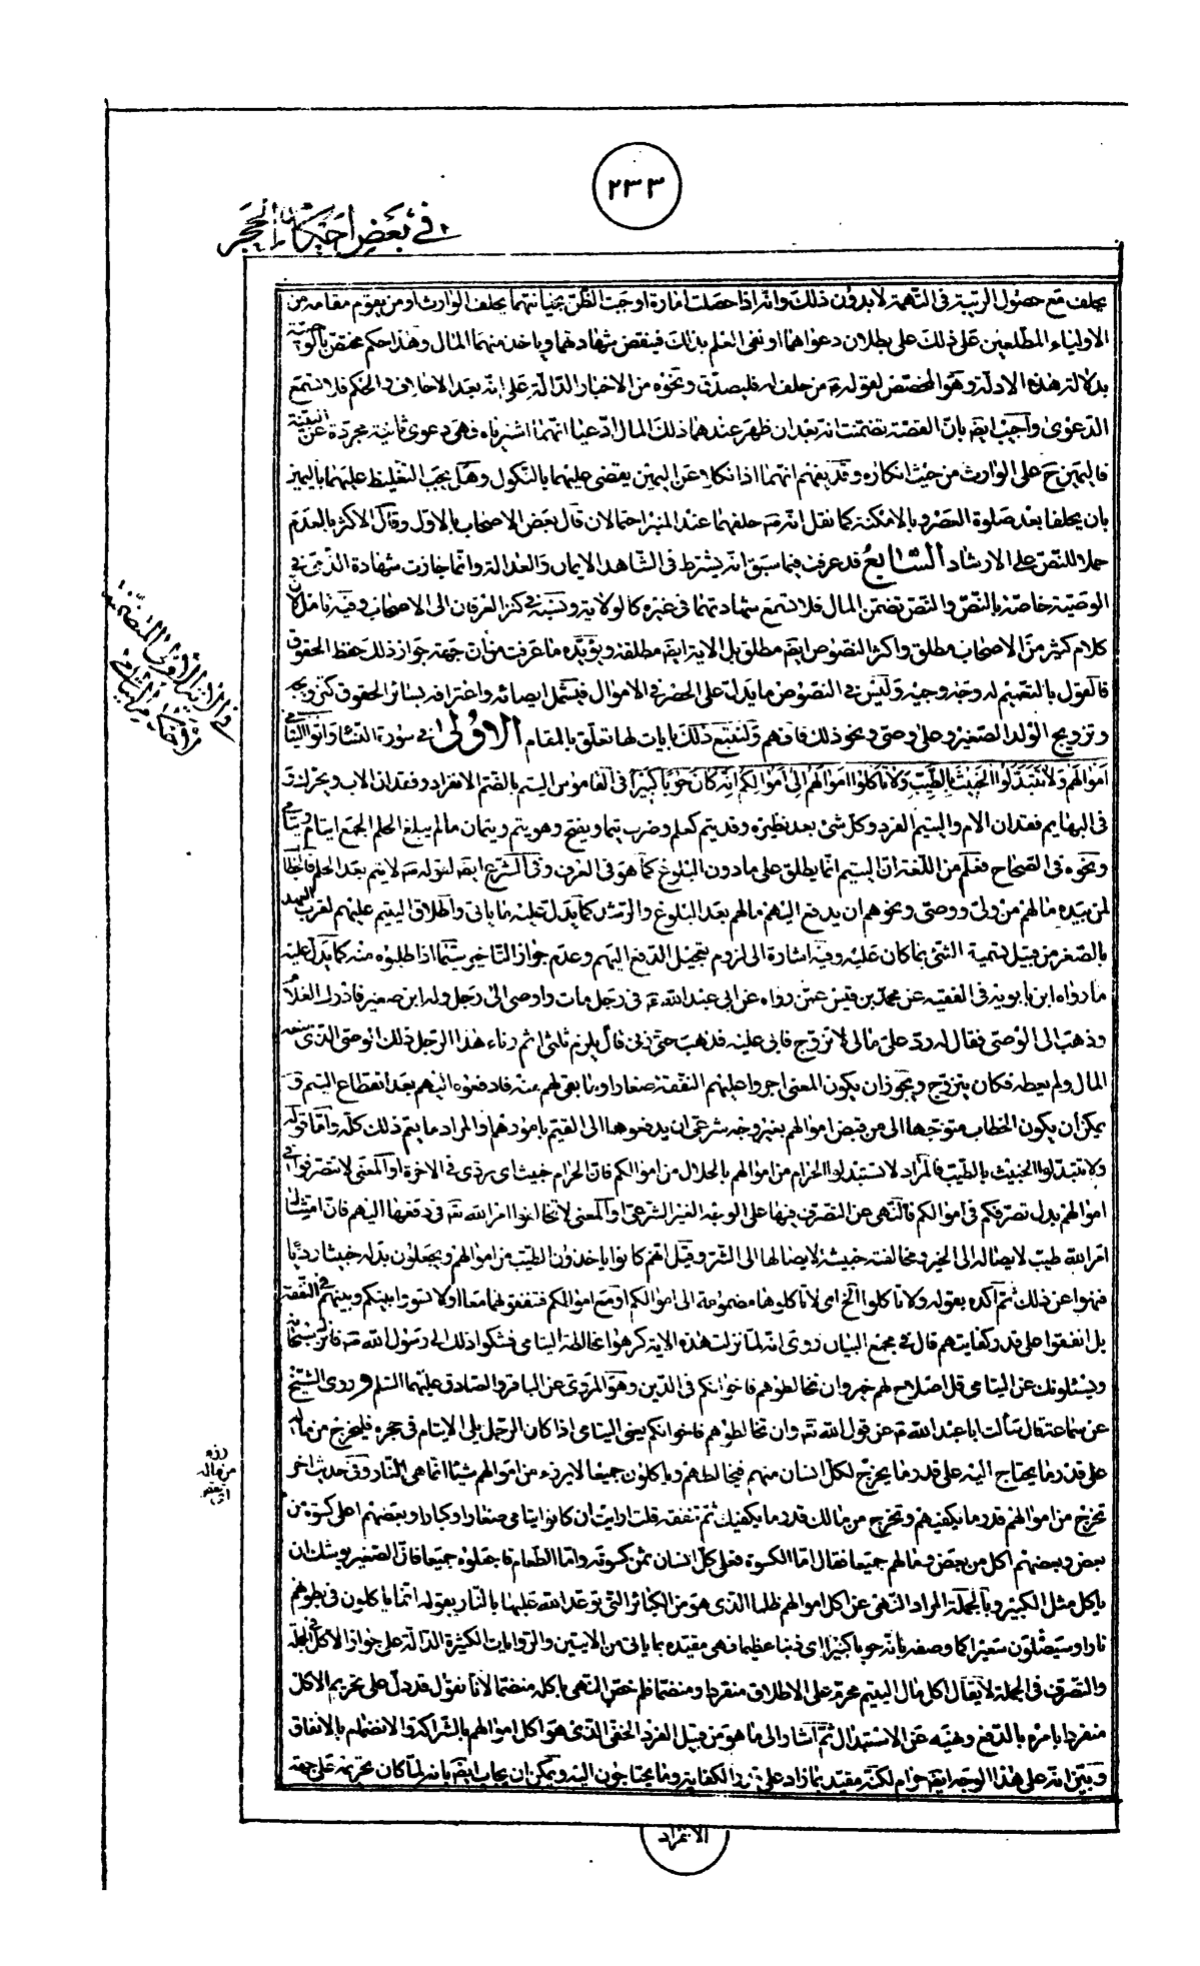 ٢٣٣
في بعض احكام الحجر
يحلف مع حصول الريبة في التهمة لا بدون ذلك وانه اذا حصلت امارة اوجبت الظن بخيانتهما يحلف الوارث او من يقوم مقامه من
الاولياء المطلعين على ذلك على بطلان دعواهما او نفى العلم بذلك فينقض شهادتهما وياخذ منهما المال وهذا حكم مختص بالوصية
بدلالة هذه الادلة وهو المخصص لقوله من حلف له فليصدق ونحوه من الاخبار الدالة على انه بعد الاحلاف والحكم فلا تسمع
الدعوى واجيب ايضا بان القصة تضمنت انه بعد ان ظهر عندهما ذلك المال ادعيا انهما اشترياه فهى دعوى ثانية مجردة عن البينة
فاليمين ح على الوارث من حيث انكاره وقد يفهم انهما اذا نكلا عن اليمين يقضى عليهما بالنكول وهل يجب التغليظ عليهما باليمين
بان يحلفا بعد صلوة العصر وبالامكنة كما نقل انه ص حلفهما عند المنبر احتمالان قال بعض الاصحاب بالاول وقال الاكثر بالعدم
حملا للنص على الارشاد السابع قد عرفت فيما سبق انه يشترط في الشاهد الايمان والعدالة وانما جازت شهادة الذمى في
الوصية خاصة بالنص والنص تضمن المال فلا تسمع شهادتهما في غيره كالولاية ونسبه في كنز العرفان الى الاصحاب وفيه تامل لان
كلام كثير من الاصحاب مطلق واكثر النصوص ايضا مطلق بل الاية ايضا مطلقة ويؤيده ما عرفت من ان جهة جواز ذلك حفظ الحقوق
فالقول بالتعميم له وجه وجيه وليس في النصوص ما يدل على الحصر في الاموال فيشمل ايصائه واعترافه بسائر الحقوق كنى وبحر
وتزويج الولد الصغير وحلى وصى ونحو ذلك فافهم ولنتبع ذلك بايات لها تعلق بالمقام الاولى في سورة النساء واتوا اليتامى
اموالهم ولا تتبدلوا الخبيث بالطيب ولا تاكلوا اموالهم الى اموالكم انه كان حوبا كبيرا في القاموس اليتم بالضم الانفراد وفقدان الاب ويحرك وفي
في البهايم فقدان الام واليتيم الفرد وكل شئ بعد نظيره وقد يتم كعلم وضرب يتما ويفتح وهو يتم ويتمان مالم يبلغ الحلم الجمع ايتام ويتامى
ونحوه في الصحاح فعلم من اللغة ان اليتيم انما يطلق على مادون البلوغ كما هو في العرف وفي الشرع ايضا لقوله ص لا يتم بعد الحلم فالخطاب
لمن بيده مالهم من ولى ووصى ونحوهم ان يدفع اليهم مالهم بعد البلوغ والرشد كما يدل عليه ما ياتى واطلاق اليتيم عليهم لقرب العهد
بالصغر من قبيل تسمية الشئ بما كان عليه وفيه اشارة الى لزوم تعجيل الدفع اليهم وعدم جواز التاخير سيما اذا طلبوه منه كما يدل عليه
ما رواه ابن بابويه في الفقيه عن محمد بن قيس عمن رواه عن ابى عبد الله ع في رجل مات واوصى الى رجل وله ابن صغير فادرك الغلام
وذهب الى الوصى فقال له رد على مالى لا تزوج فابى عليه فذهب حتى زنى قال يلزم ثلثى اثم زناء هذا الرجل ذلك الوصى الذى منعه
المال ولم يعطه فكان يتزوج ويجوز ان يكون المعنى اجروا عليهم النفقة صغارا وما بقى لهم منه فادفعوه اليهم بعد انقطاع اليتم و
يمكن ان يكون الخطاب متوجها الى من قبض اموالهم بغير وجه شرعى ان يدفعوها الى القيم بامورهم والمراد ما يتم ذلك كله واما قوله
ولا تتبدلوا الخبيث بالطيب فالمراد لا تستبدلوا الحرام من اموالهم بالحلال من اموالكم فان الحرام خبيث اى ردى في الاخرة او المعنى لا تتصرفوا في
اموالهم بدل تصرفكم في اموالكم فالنهى عن التصرف فيها على الوجه الغير الشرعى او المعنى لا تخالفوا امر الله تع في دفعها اليهم فان امتثال
امر الله طيب لايصاله الى الخير ومخالفته خبيثة لايصالها الى الشر وقيل انهم كانوا ياخذون الطيب من اموالهم ويجعلون بدله خبيثا رديا
فنهوا عن ذلك ثم اكده بقوله ولا تاكلوا الخ اى لا تاكلوها مضمومة الى اموالكم او مع اموالكم فتنفقوهما معا اولا تسووا بينكم وبينهم في النفقة
بل انفقوا على قدر كفايتهم قال في مجمع البيان روى انه لما نزلت هذه الاية كرهوا مخالطة اليتامى فشكوا ذلك الى رسول الله ص فانزل سبحانه
ويسئلونك عن اليتامى قل اصلاح لهم خير وان تخالطوهم فاخوانكم في الدين وهو المروى عن الباقر والصادق عليهما السلم وروى الشيخ
عن سماعة قال سألت ابا عبد الله ع عن قول الله تع وان تخالطوهم فاخوانكم يعنى اليتامى اذا كان الرجل يلى الايتام في حجره فليخرج من ماله
على قدر ما يحتاج اليه على قدر ما يخرج لكل انسان منهم فيخالطهم وياكلون جميعا لايرزء من اموالهم شيئا انما هى النار وفي حديث اخر
تخرج من اموالهم قدر ما يكفيهم وتخرج من مالك قدر ما يكفيك ثم تنفقه قلت ارايت ان كانوا ايتامى صغارا وكبارا وبعضهم اعلى كسوة من
بعض وبعضهم اكل من بعض ومالهم جميعا فقال اما الكسوة فعلى كل انسان ثمن كسوته واما الطعام فاجعلوه جميعا فان الصغير يوشك ان
ياكل مثل الكبير وبالجملة المراد النهى عن اكل اموالهم ظلما الذى هو من الكبائر التى توعد الله عليها بالنار بقوله انما ياكلون في بطونهم
نارا وسيصلون سعيرا كما وصفه بانه حوبا كبيرا اى ذنبا عظيما فهى مقيده بما ياتى من الايتين والروايات الكثيرة الدالة على جواز الاكل في الجملة
والتصرف في الجملة لا يقال اكل مال اليتيم محرم على الاطلاق منفردا ومنضما فلم خص النهى باكله منضما لانا نقول قد دل على تحريم الاكل
منفردا بامره بالدفع ونهيه عن الاستبدال ثم اشار الى ما هو من قبيل الفرد الخفى الذى هو اكل اموالهم بالشراكة والانضمام بالانفاق
وبين انه على هذا الوجه ايضا حرام لكنه مقيد بما زاد على قدر الكفاية وما يحتاجون اليه ويمكن ان يجاب ايضا بانه لما كان تحريمه على جهة
الانفراد
في الاية الاولى المتضمنة
رزء
من ماله